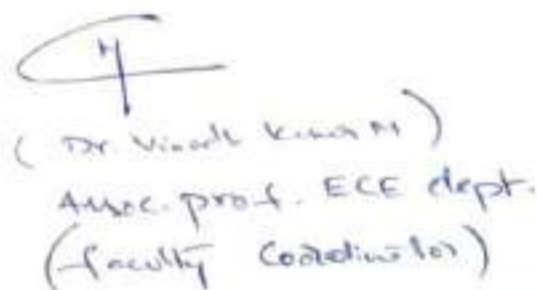 (Dr. Vinoth Kumar M)
Assoc. prof. ECE dept.
(faculty Coordinator)